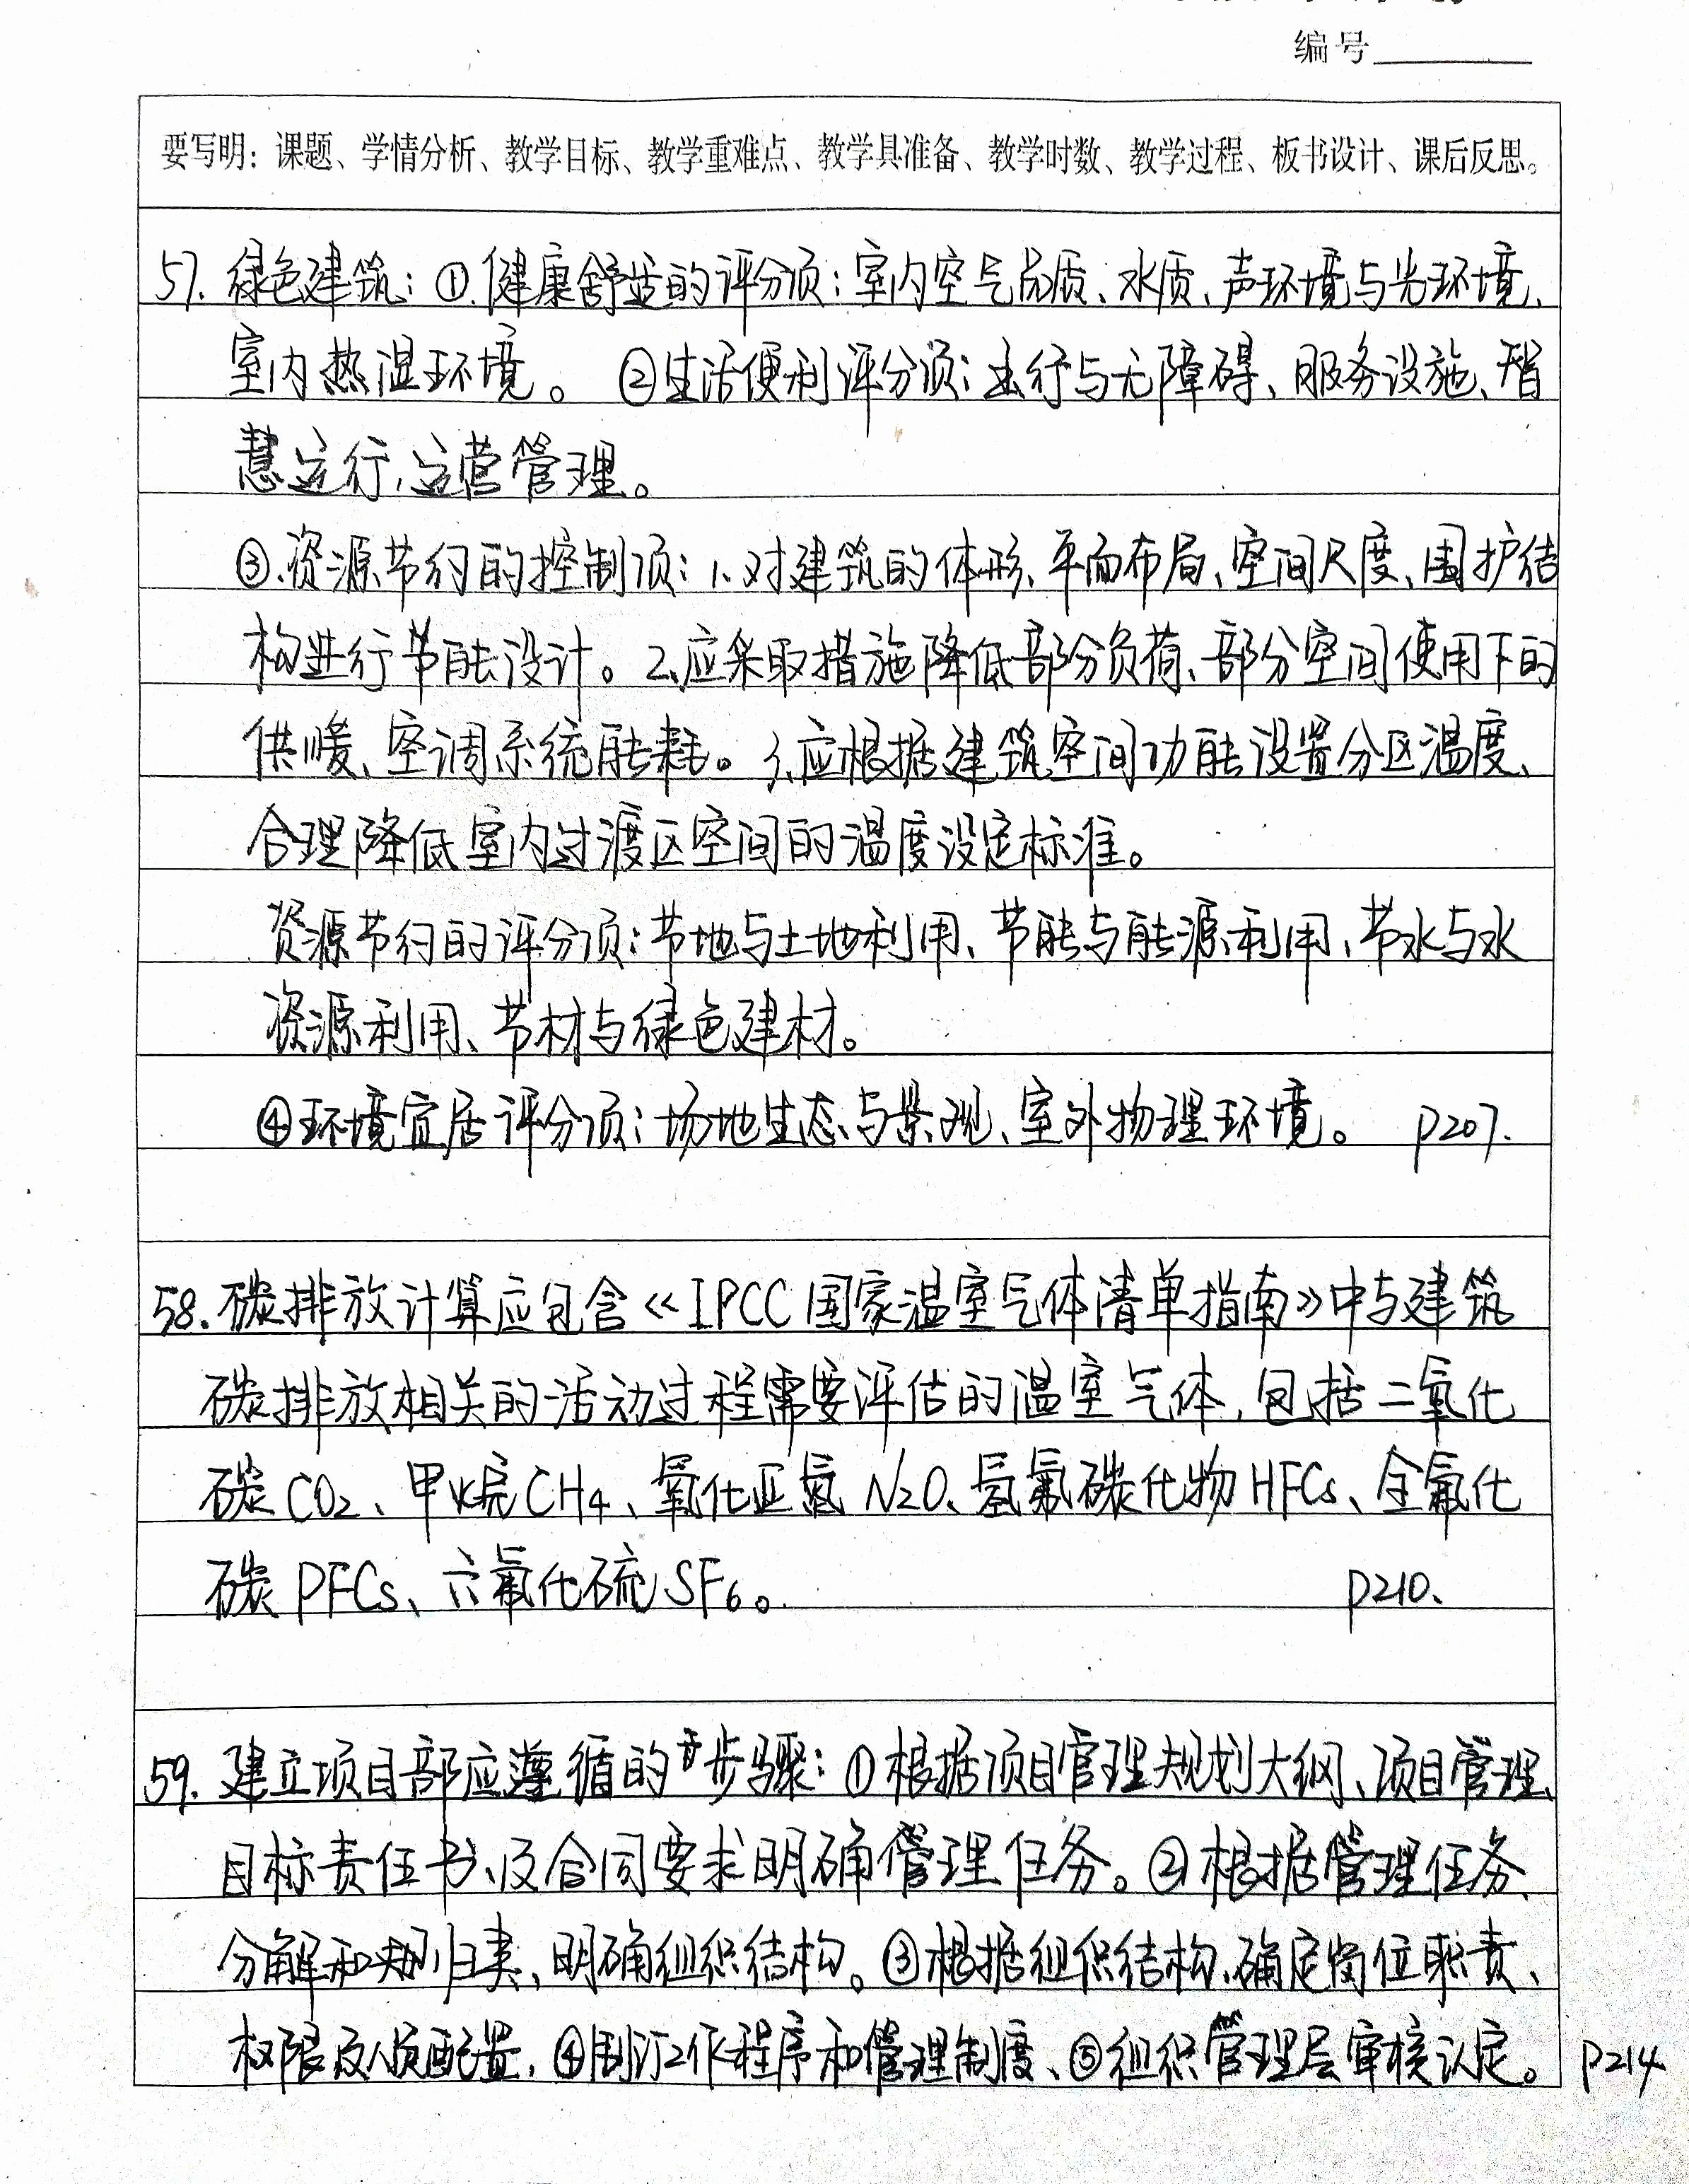 编号
要写明：课题、学情分析、教学目标、教学重难点、教学具准备、教学时数、教学过程、板书设计、课后反思。
57. 绿色建筑：①.健康舒适的评分项：室内空气品质、水质、声环境与光环境、
室内热湿环境。 ②生活便利评分项：出行与无障碍、服务设施、智
慧运行，运营管理。
③.资源节约的控制项：1、对建筑的体形、平面布局、空间尺度、围护结
构进行节能设计。2、应采取措施降低部分负荷、部分空间使用下的
供暖、空调系统能耗。3、应根据建筑空间功能设置分区温度、
合理降低室内过渡区空间的温度设定标准。
资源节约的评分项：节地与土地利用、节能与能源利用、节水与水
资源利用、节材与绿色建材。
④环境宜居评分项：场地生态与景观、室外物理环境。 P207.
58. 碳排放计算应包含《IPCC国家温室气体清单指南》中与建筑
碳排放相关的活动过程需要评估的温室气体，包括二氧化
碳CO2、甲烷CH4、氧化亚氮N2O、氢氟碳化物HFCs、全氟化
碳PFCs、六氟化硫SF6。 P210、
59. 建立项目部应遵循的步骤：①根据项目管理规划大纲、项目管理
目标责任书、及合同要求明确管理任务。②根据管理任务
分解和归类、明确组织结构。③根据组织结构、确定岗位职责、
权限及人员配置，④制订工作程序和管理制度、⑤组织管理层审核认定。 P214